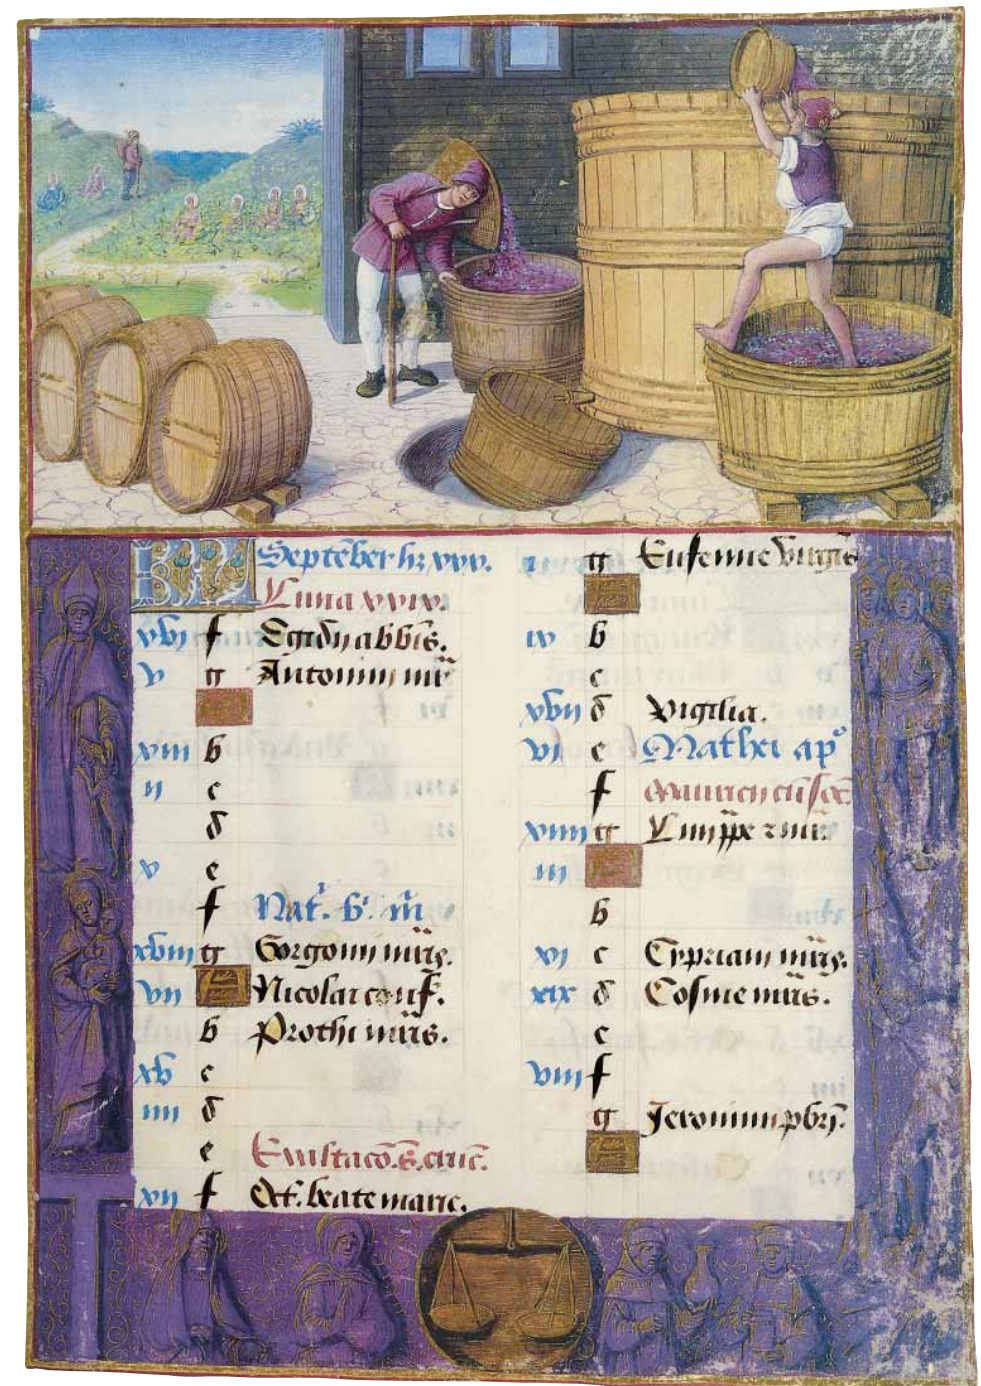 KL September h̄z xxx.
Luna xxix.
xvi f Egidij abb̄is.
v g Antonini m̄r
xiii b
ii c
d
v e
f Nat̄. b̄. m̄
xviii g Gorgonij m̄ris.
vii Nicolai conf̄.
b Prothi m̄ris.
xv c
iiii d
e Exaltatio s̄. cruc̄.
xii f Oct̄. beate marie.
i g Eufemie virgīs
ix b
c
xvii d Vigilia.
vi e Mathei apº
f Mauricij cū soc̄
xiiii g
iii
b
xi c Cypriani m̄ris.
xix d Cosme m̄ris.
e
viii f
g Jeronimi pb̄ri.